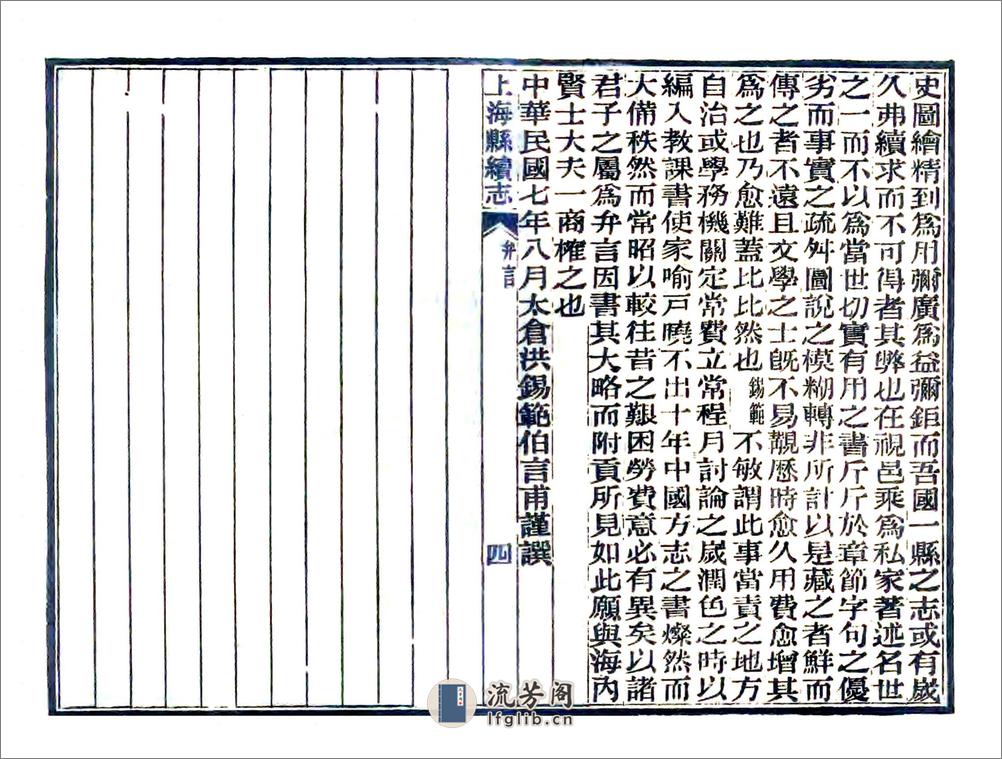 史圖繪精到爲用彌廣爲益彌鉅而吾國一縣之志或有歲
久弗續求而不可得者其弊也在視邑乘爲私家著述名世
之一而不以爲當世切實有用之書斤斤於章節字句之優
劣而事實之疏舛圖說之模糊轉非所計以是藏之者鮮而
傳之者不遠且文學之士旣不易覯歷時愈久用費愈增其
爲之也乃愈難蓋比比然也錫範不敏謂此事當責之地方
自治或學務機關定常費立常程月討論之歲潤色之時以
編入教課書使家喻戶曉不出十年中國方志之書燦然而
大備秩然而常昭以較往昔之艱困勞費意必有異矣以諸
君子之屬爲弁言因書其大略而附貢所見如此願與海內
賢士大夫一商榷之也
中華民國七年八月太倉洪錫範伯言甫謹譔
上海縣續志 弁言 四
流芳阁
lfglib.cn